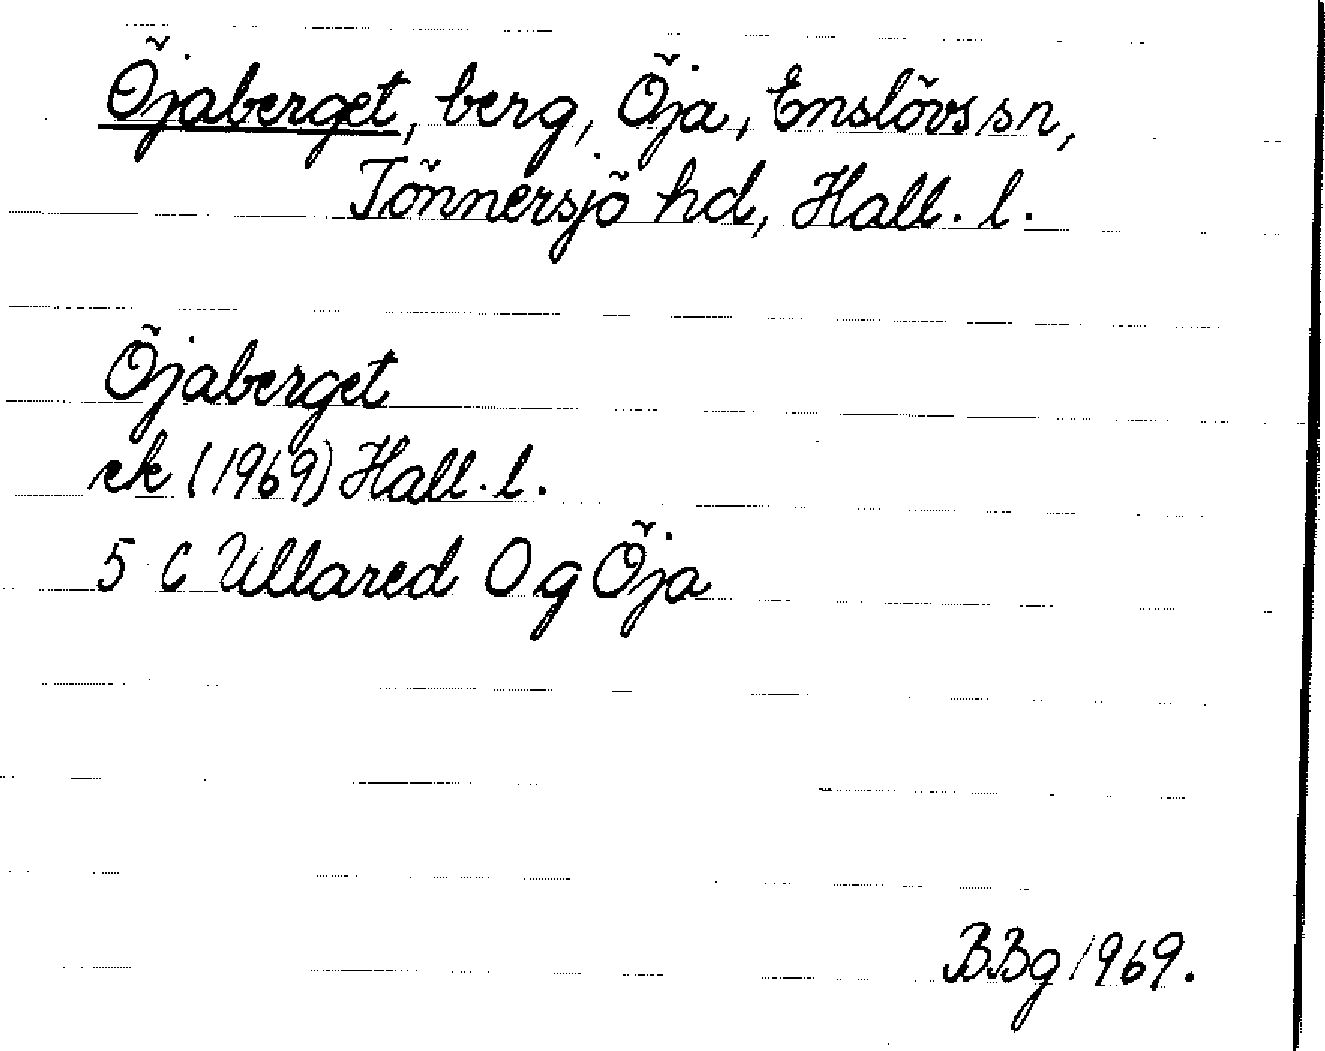 Öjaberget, berg, Öja, Enslövs sn,
Tönnersjö hd, Hall. l.
Öjaberget
ek (1969) Hall. l.
5 C Ullared O g Öja
BBg 1969.